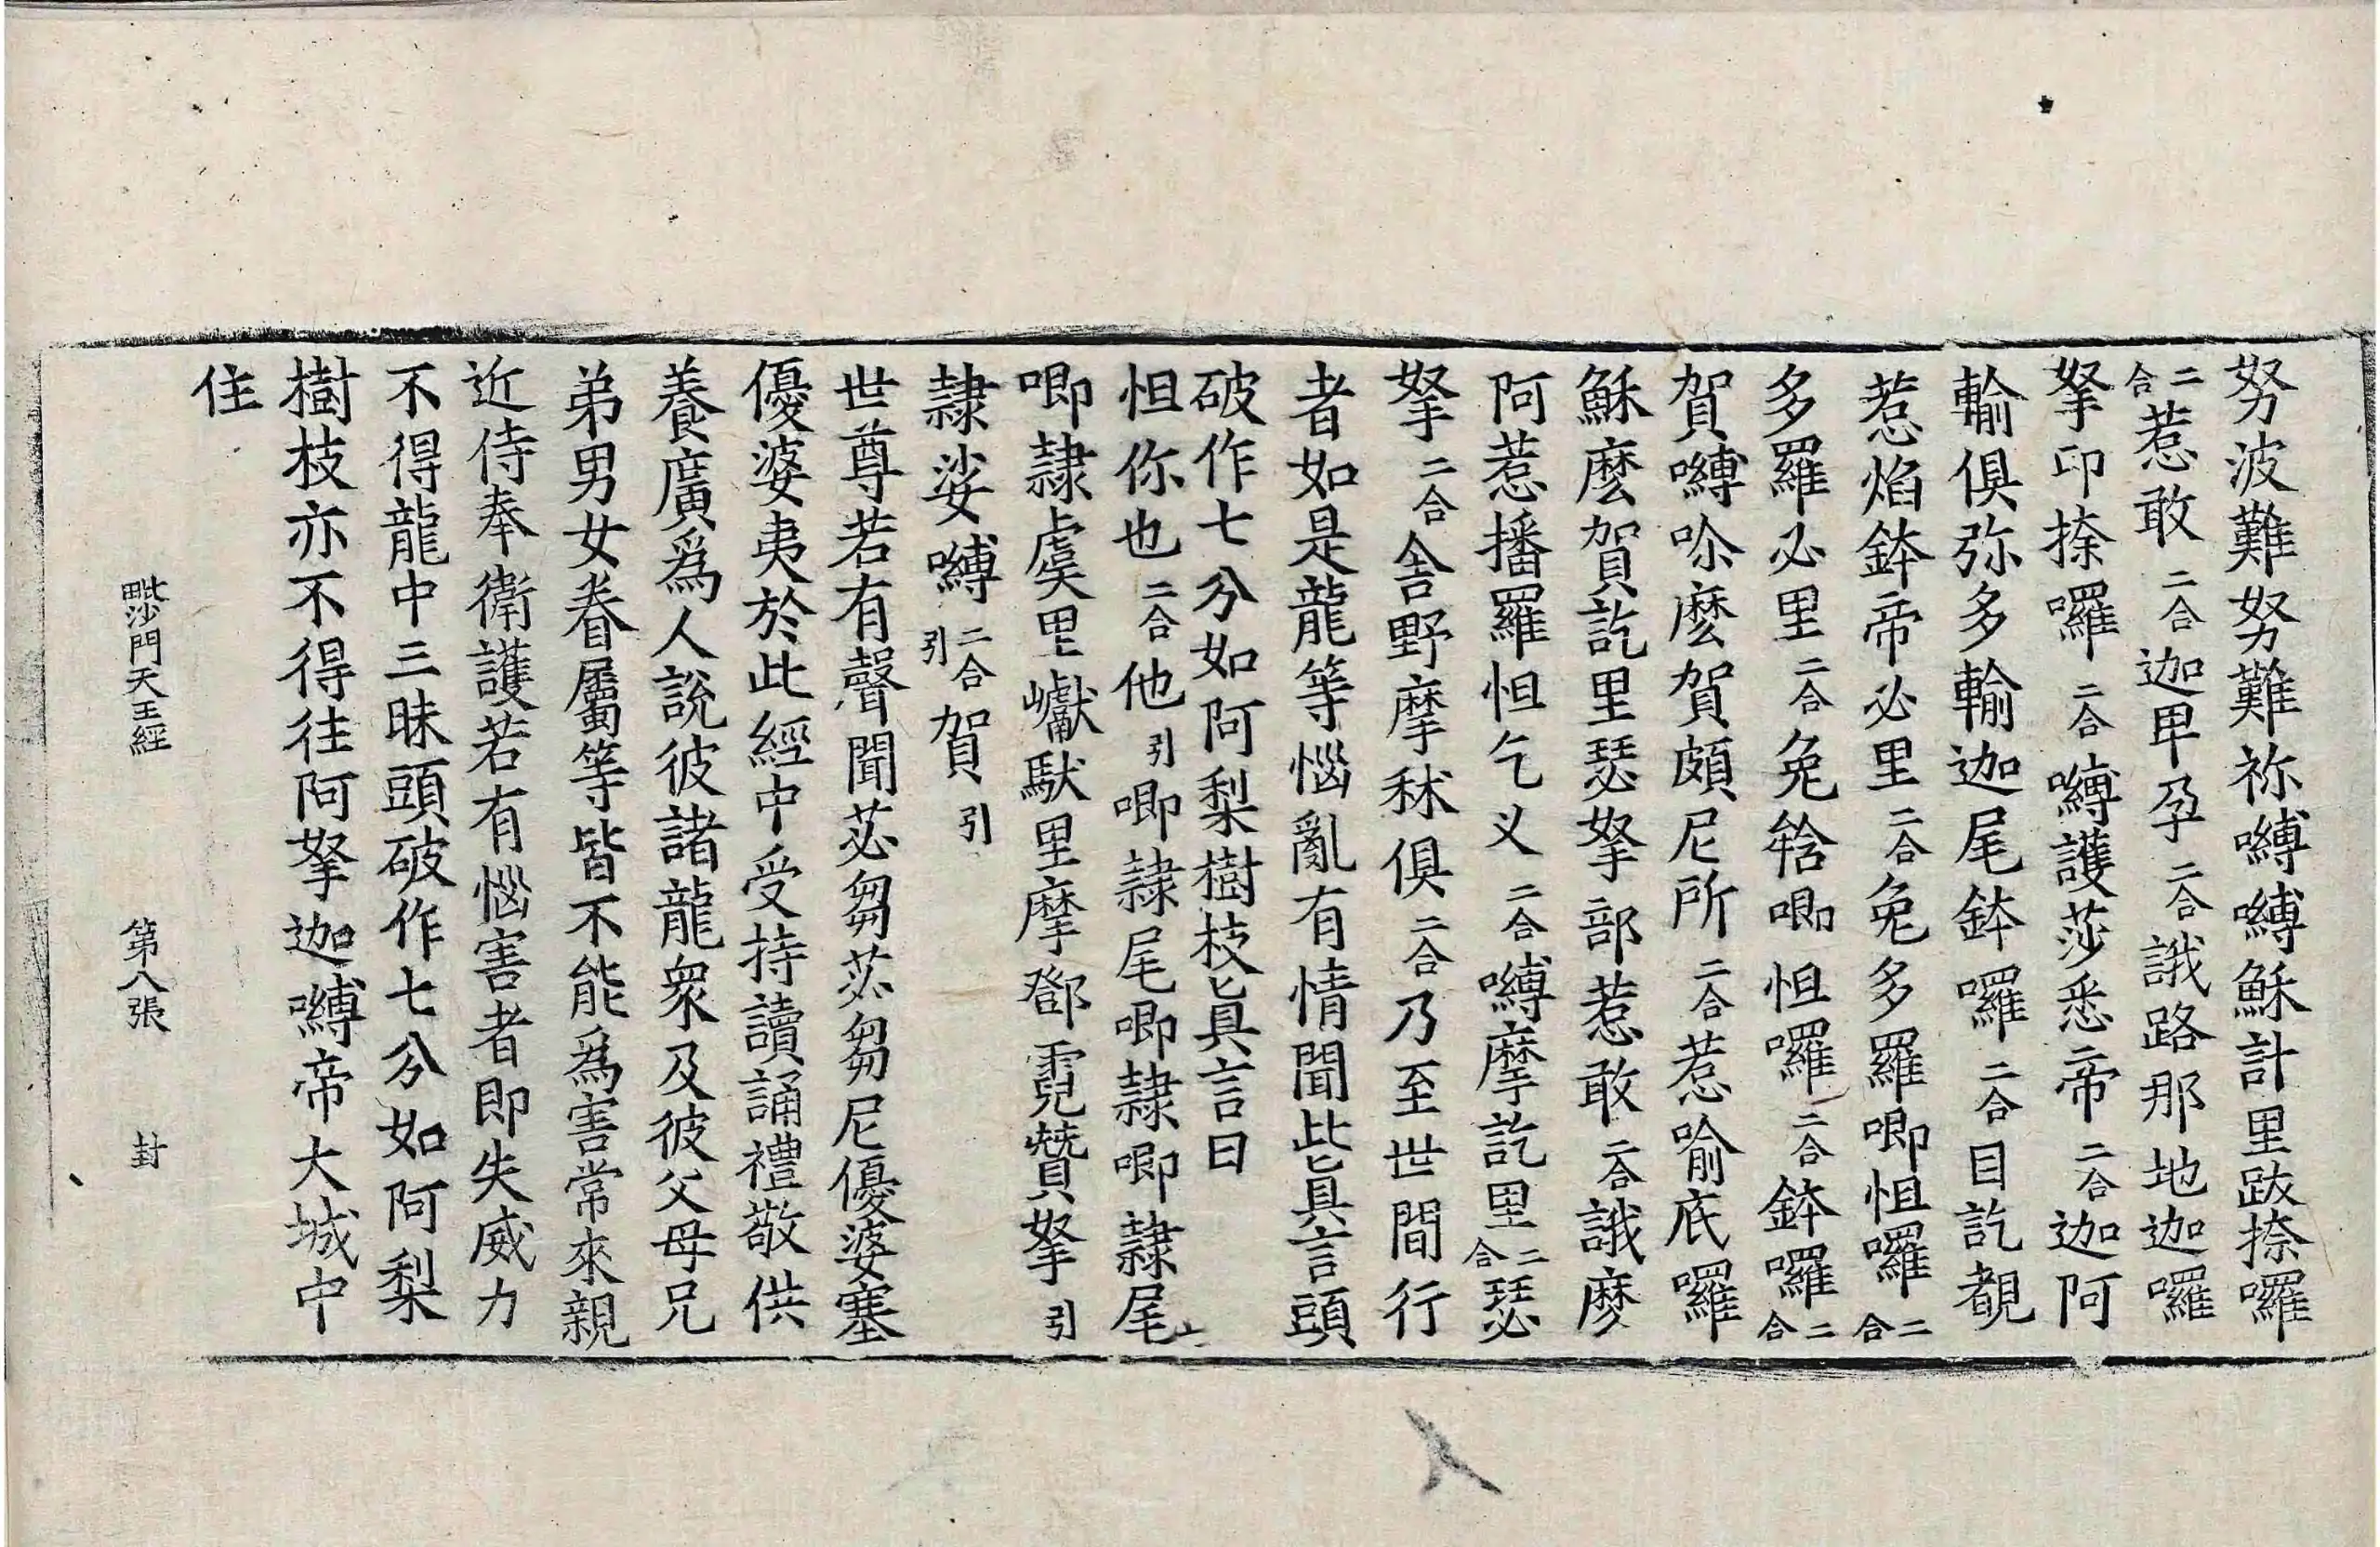 努波難努難祢嚩嚩穌計里跋捺囉
二合惹敢二合迦畢孕二合誐路那地迦囉
拏印捺囉二合嚩護莎悉帝二合迦阿
輸俱弥多輸迦尾鉢囉二合目訖覩
惹焰鉢帝必里二合兔多羅唧怛囉二合
多羅必里二合兔𤚥唧怛囉二合鉢囉二合
賀嚩唹麽賀頗尼所二合惹喻底囉
穌麽賀訖里瑟拏部惹敢二合誐麽
阿惹播羅怛乞叉二合嚩摩訖里二合瑟
拏二合舍野摩秫俱二合乃至世間行
者如是龍等惱亂有情聞此真言頭
破作七分如阿梨樹枝真言曰
怛你也二合他引唧隷尾唧隷唧隷尾上
唧隷虞里巘馱里摩鄧霓贊拏引
隷娑嚩二合引賀引
世尊若有聲聞苾芻苾芻尼優婆塞
優婆夷於此經中受持讀誦禮敬供
養廣為人說彼諸龍眾及彼父母兄
弟男女眷屬等皆不能為害常來親
近侍奉衛護若有惱害者即失威力
不得龍中三昧頭破作七分如阿梨
樹枝亦不得往阿拏迦嚩帝大城中
住
毗沙門天王經 第八張 封